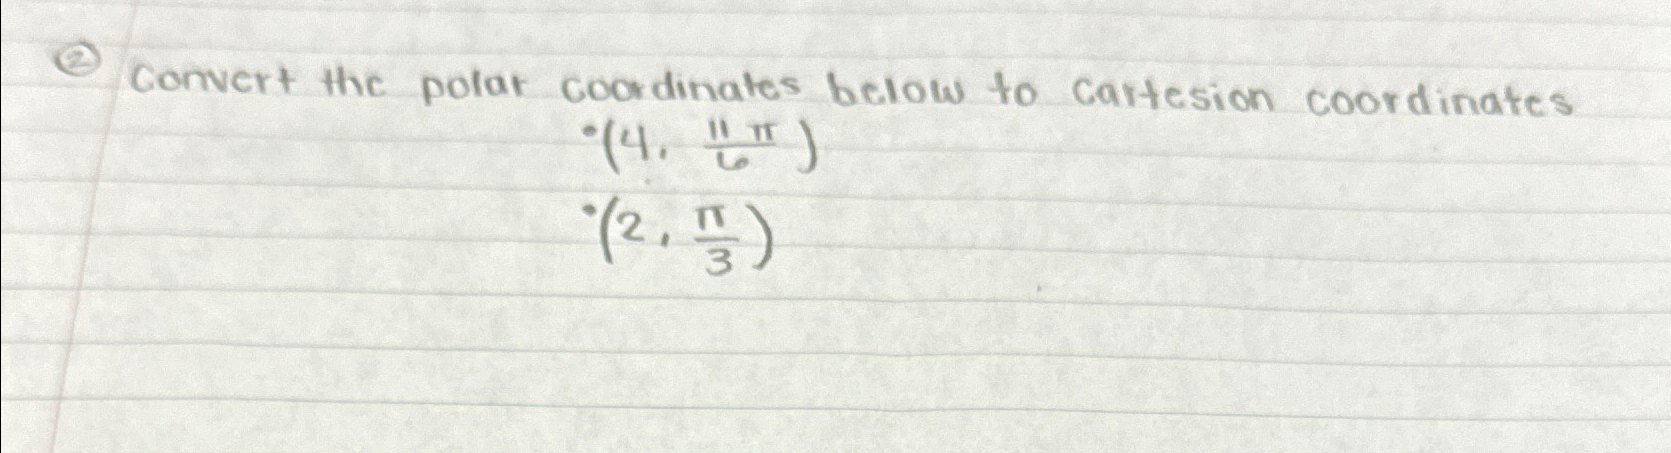 ② Convert the polar coordinates below to cartesion coordinates
• (4, 11π/6)
• (2, π/3)